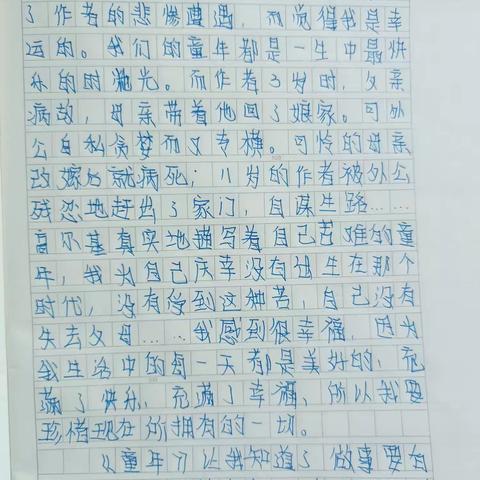 了作者的悲惨遭遇，而觉得我是幸
运的。我们的童年都是一生中最快
乐的时光。而作者3岁时，父亲
病故，母亲带着他回了娘家。可外
公自私贪婪而又专横。可怜的母亲
改嫁后就病死；11岁的作者被外公
残忍地赶出了家门，自谋生路……
高尔基真实地描写着自己苦难的童
年，我为自己庆幸没有出生在那个
时代，没有受到这种苦，自己没有
失去父母……我感到很幸福，因为
我生活中的每一天都是美好的，充
满了快乐，充满了幸福，所以我要
珍惜现在所拥有的一切。
《童年》让我知道了做事要有